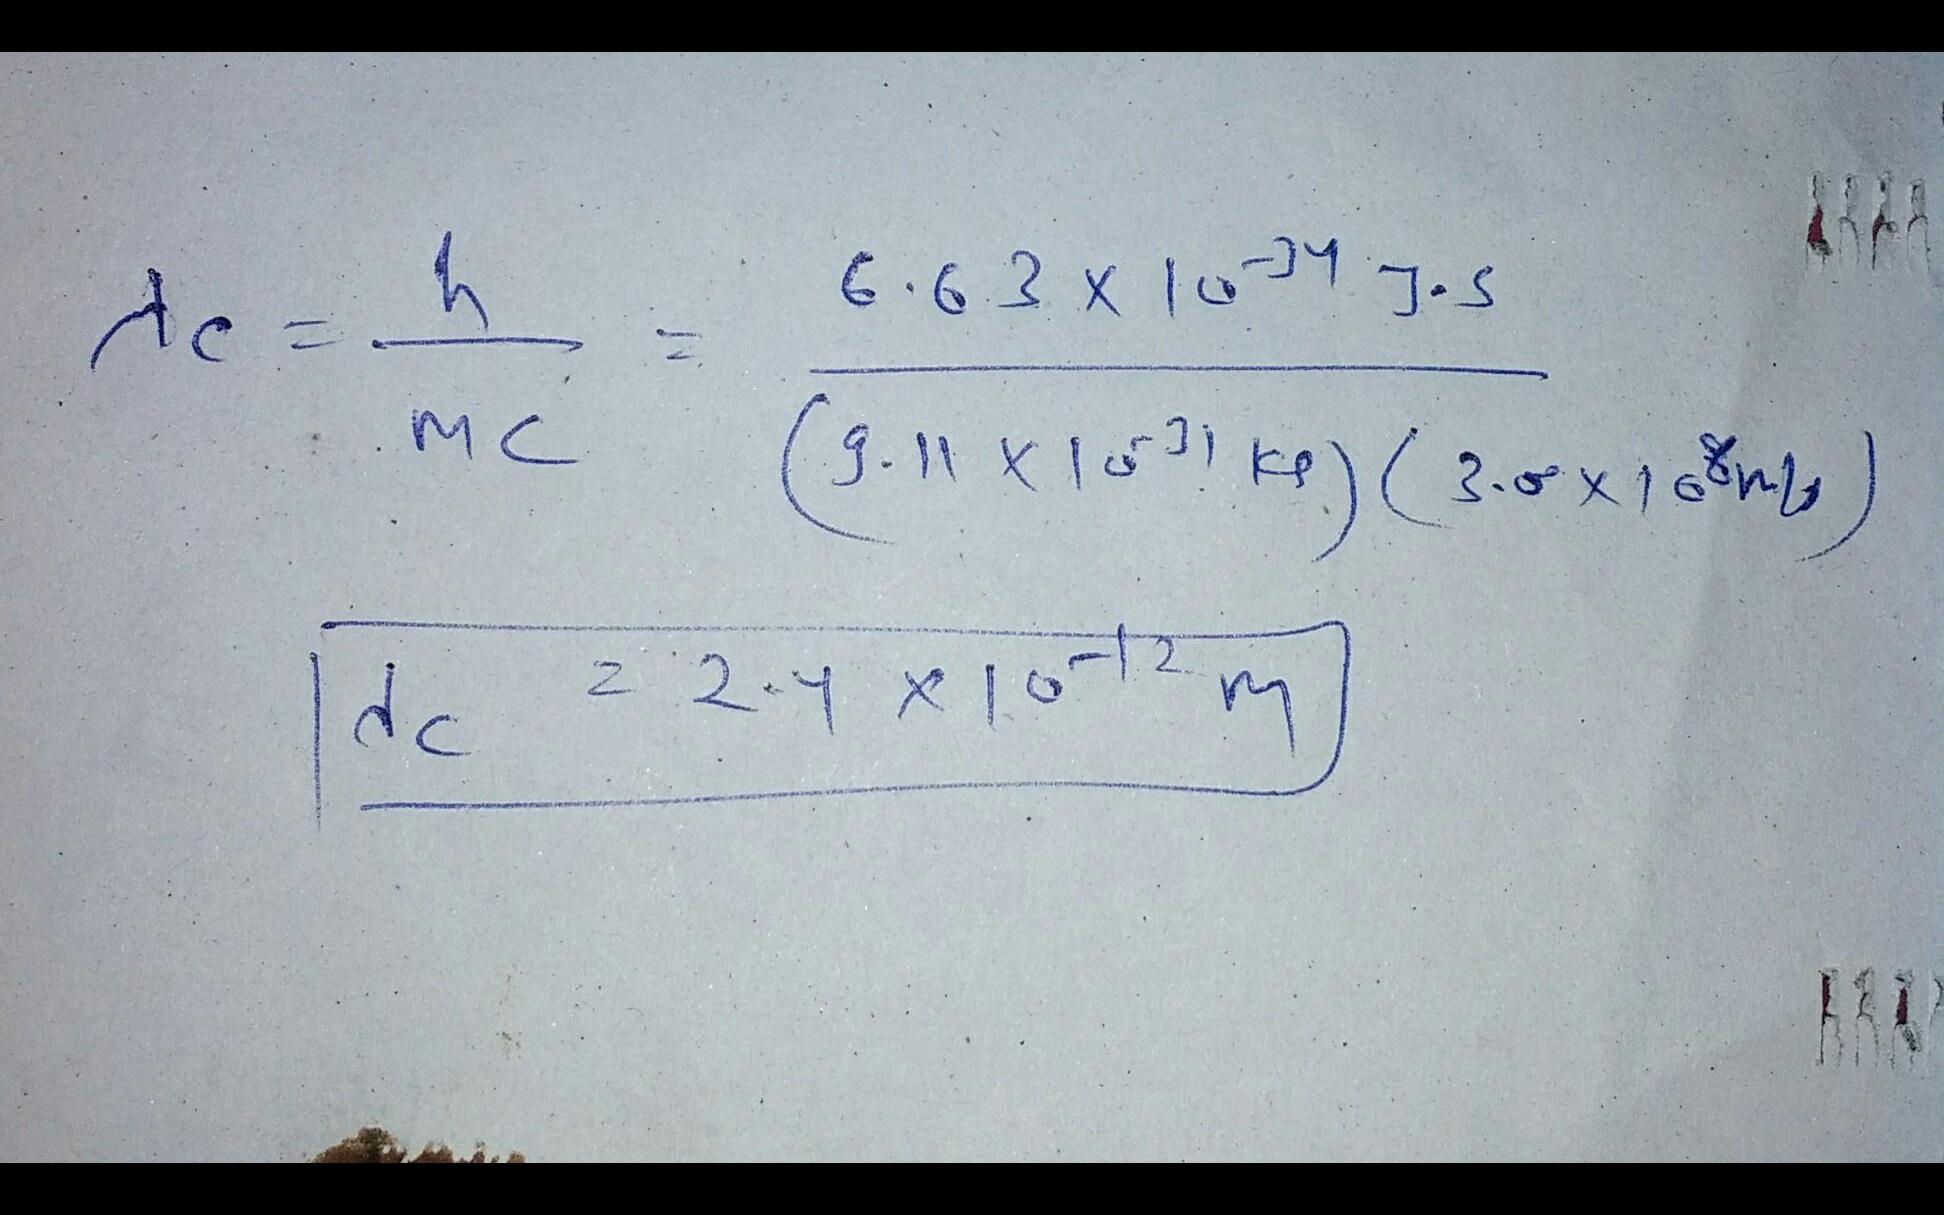 λc = h/mc = 6.63 × 10⁻³⁴ J·s / (9.11 × 10⁻³¹ kg) (3.0 × 10⁸ m/s)
λc = 2.4 × 10⁻¹² m